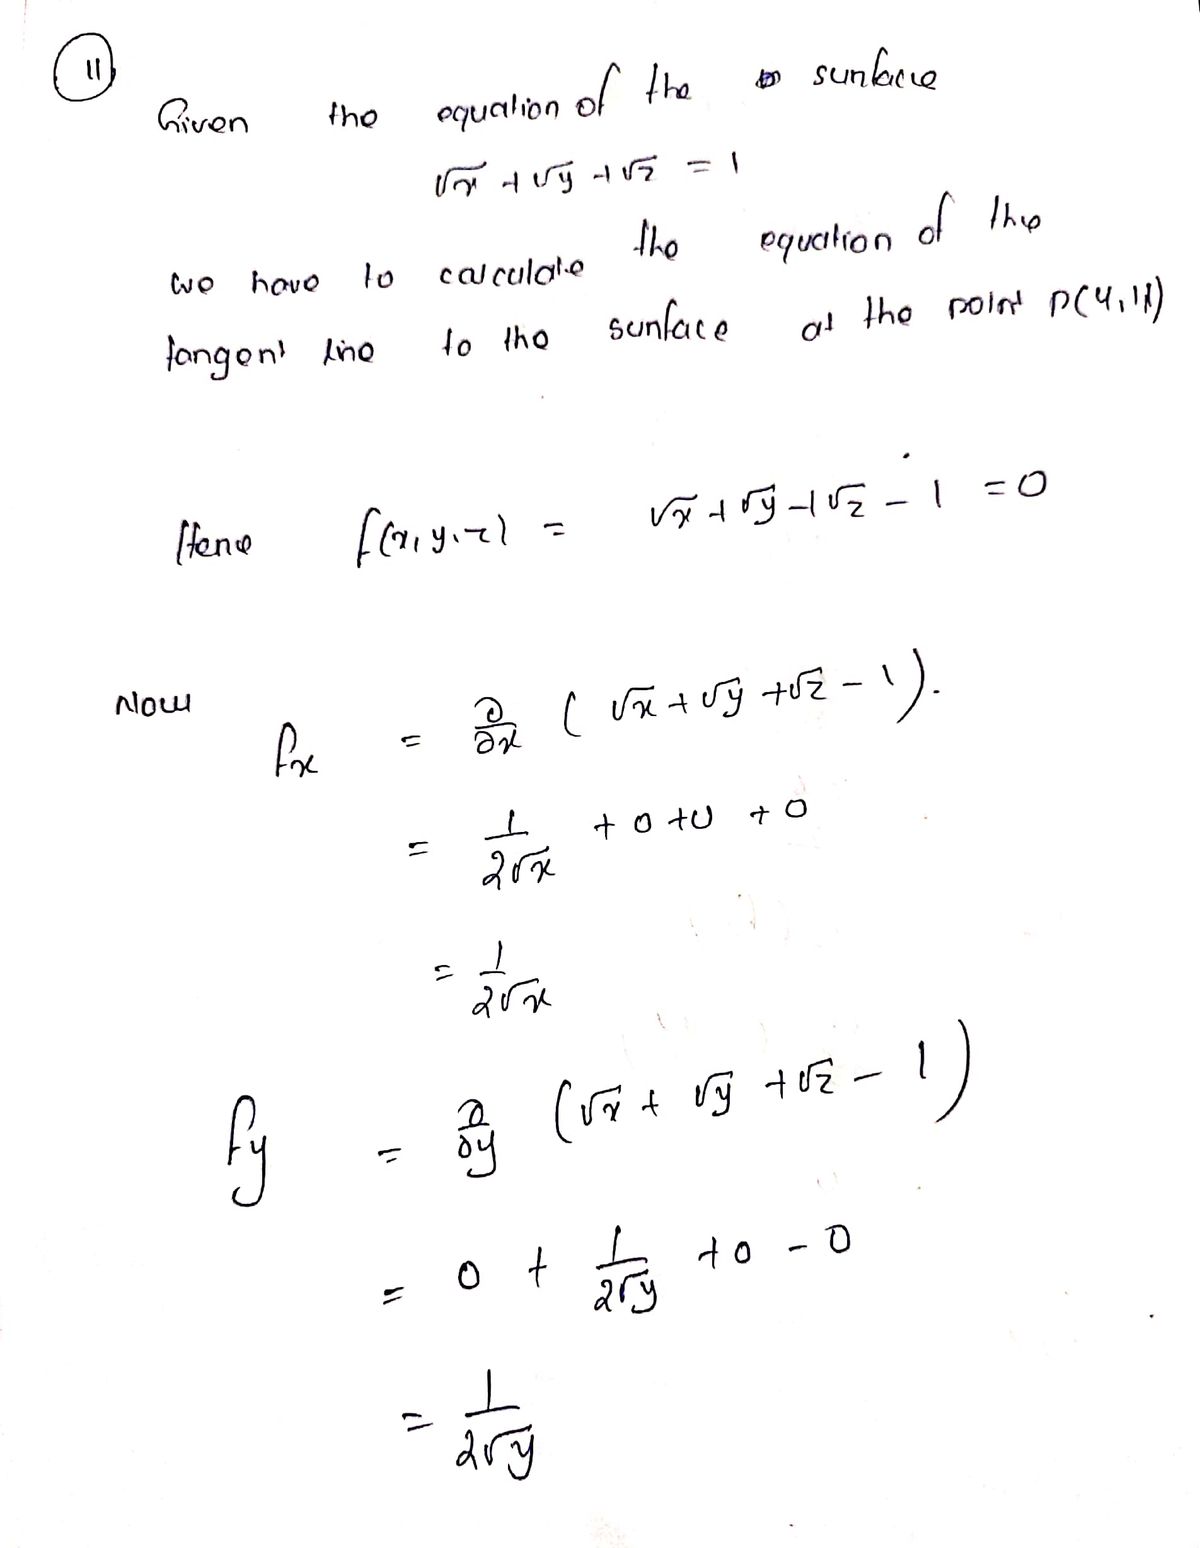 11
Given the equation of the surface
√x + √y + √z = 1
we have to calculate the equation of the
tangent line to the surface at the point P(4,1,1)
Hence f(x,y,z) = √x + √y + √z - 1 = 0
Now fx = ∂/∂x ( √x + √y + √z - 1 ).
= 1/2√x + 0 + 0 + 0
= 1/2√x
fy = ∂/∂y (√x + √y + √z - 1)
= 0 + 1/2√y + 0 - 0
= 1/2√y